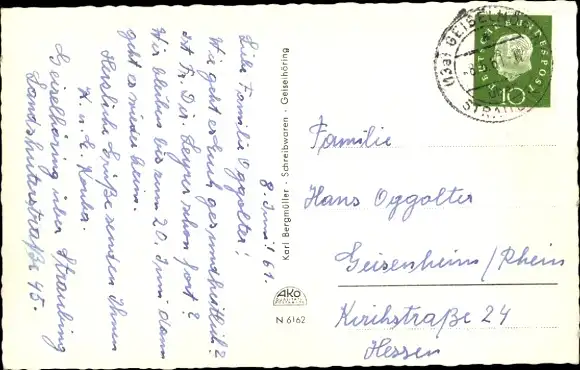 8. Juni 61.
Liebe Familie Oggolter!
Wie geht es Euch gesundheitlich?
Ist Fr. Dir. schon fort?
Wir bleiben bis zum 20. Juni dann
geht es wieder heim.
Herzliche Grüße senden Ihnen
K. u. L.
Geiselhöring über Straubing
Landshuterstraße 45.
Karl Bergmüller · Schreibwaren · Geiselhöring
AKO
N 6162
(13a) GEISELH
STRAU
DEUTSCHE BUNDESPOST
10
Familie
Hans Oggolter
Geisenheim/Rhein
Kirchstraße 24
Hessen